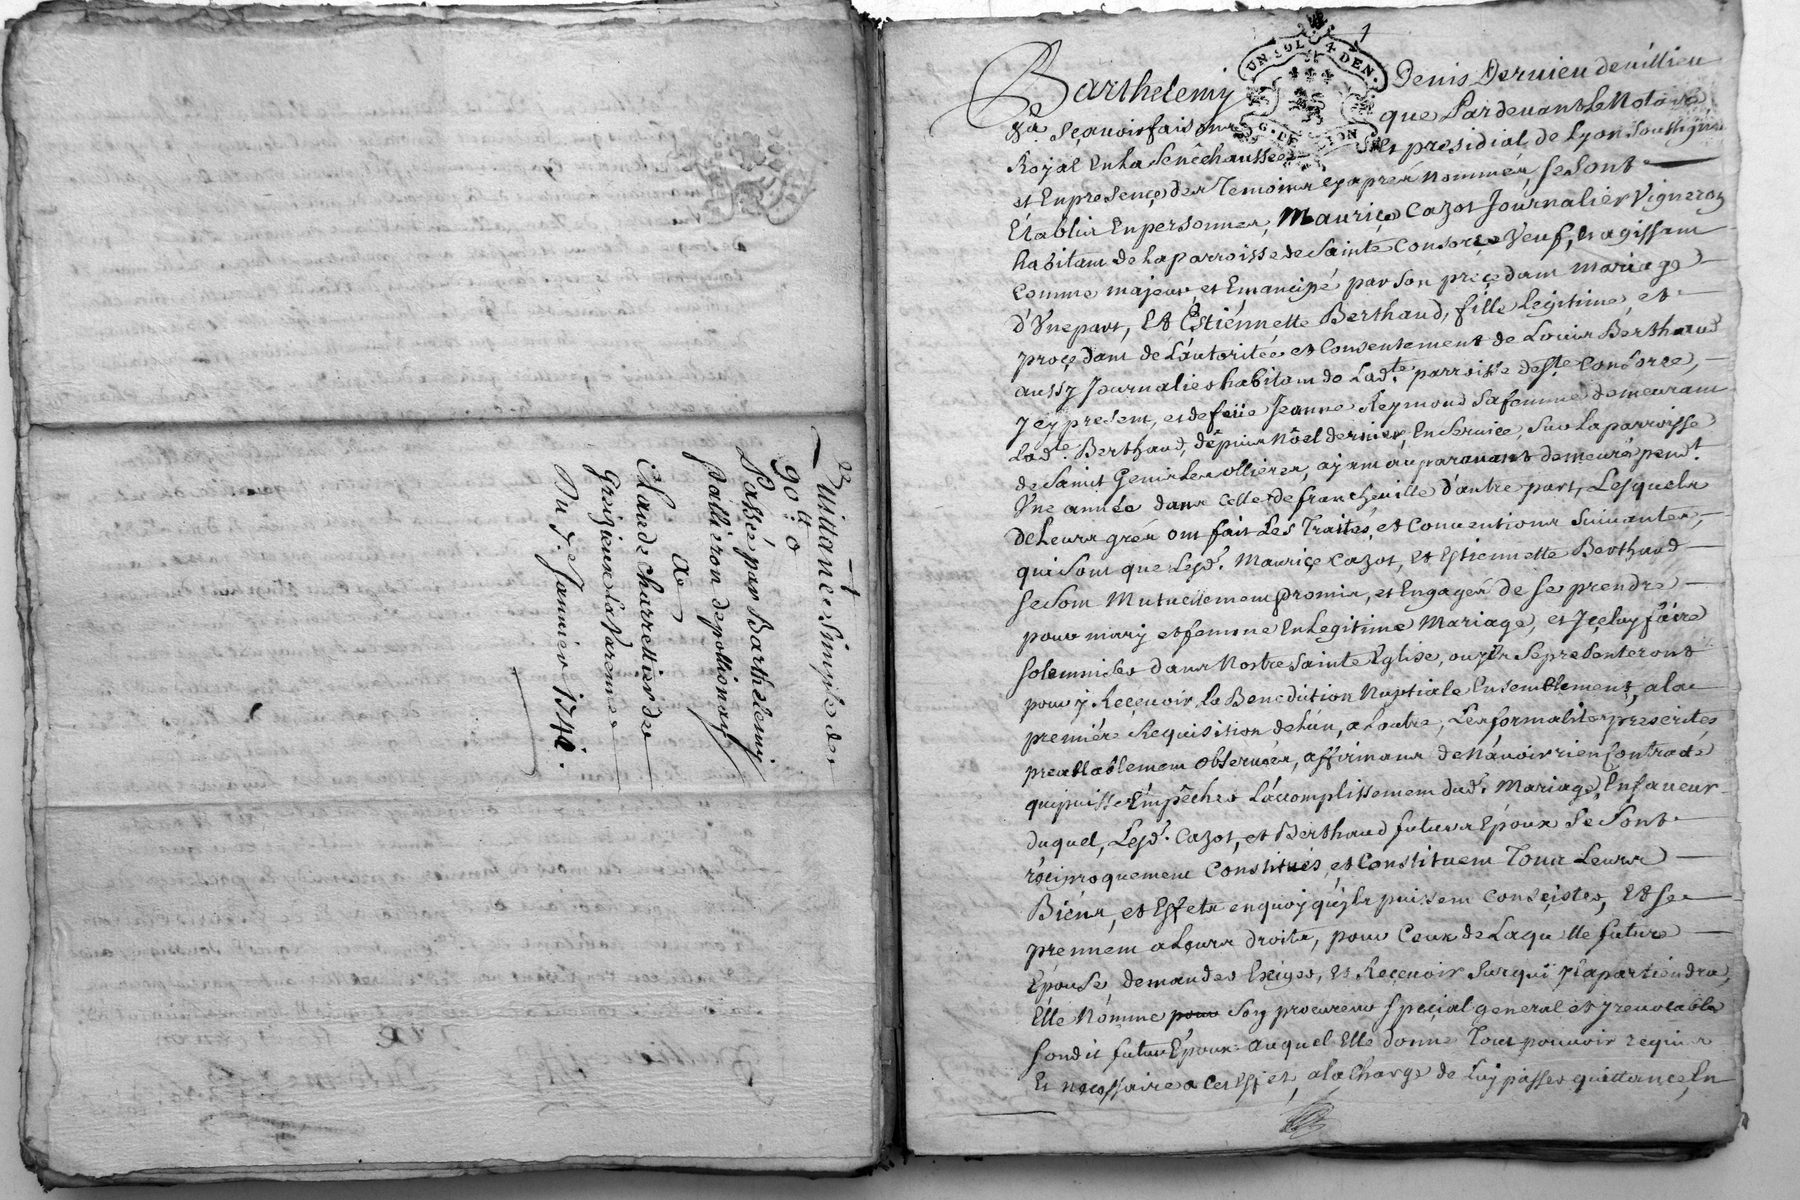 Quittance Simple de
90 ₶ 0
Passé par Barthelemy
Pallieron de pollionay
a
Claude Charretier de
Greizieu la Varenne
Du 7.e Janvier 174
UN SOL 4 DEN.
G. DE LYON
Barthelemy Denis Dervieu de villieu
Sçavoir faisons que Pardevant Le Notaire
Royal En La Senêchaussée et presidial de Lyon Soussigné
et En presence des Temoins cy aprés Nommés, se Sont
Etablis En personnes, Maurice Cazot Journalier Vigneron
habitant de La parroisse de Sainte Consorce Veuf, et agissant
Comme majeur et Emancipé par Son preçedant mariage
d'Une part, Et Estiénnette Berthaud, fille Legitime et
proçedant de L'autoritée et Consentement de Louis Berthaud
aussy Journalier habitant de Lad.te parroisse de S.te Consorce,
Jcy present, et de feüe Jeanne Reymond Sa femme demeurant
Lad.te Berthaud, dêpuis Nôel dernier, En Service, Sur La parroisse
de Saint Genis Les ollieres, ayant auparavant demeuré pend.t
Une année dans Celle de francheville d'autre part, Lesquels
de Leurs grés ont fait Les Traités, et Conventions Suivantes,
qui Sont que Lesd. Maurice Cazot, et Estiennette Berthaud
se Sont Mutuellement promis, et Engagés de Se prendre
pour mary et femme En Legitime Mariage, et Jçeluy faire
Solemniser dans Nostre Sainte Eglise, ou yls Se presenteront
pour y Reçevoir La Benediction Nuptiale Ensemblement, a La
premiére Requisition de L'un, a L'autre, Les formalités prescrites
prealablement Observées, affirmans de N'avoir rien Contracté
qui puisse Empêcher L'accomplissement dud. Mariage, En faveur
duquel, Lesd. Cazot, et Berthaud futurs Epoux Se Sont
réciproquement Constitués, et Constituent Tous Leurs
Biéns, et Effets en quoy qu'yls puissent Conseister, Et Se
prennent a Leurs droits, pour Ceux de Laquelle future
Epouse demander Exiger, et Reçevoir Sur qui Jl apartiendra,
Elle Nomme pour Son procureur Speçial general et Jrevocable
Sondit futur Epoux auquel Elle donne Tout pouvoir requis
Et necessaire a Cet Effet, a La Charge de Luy passer quittance, En